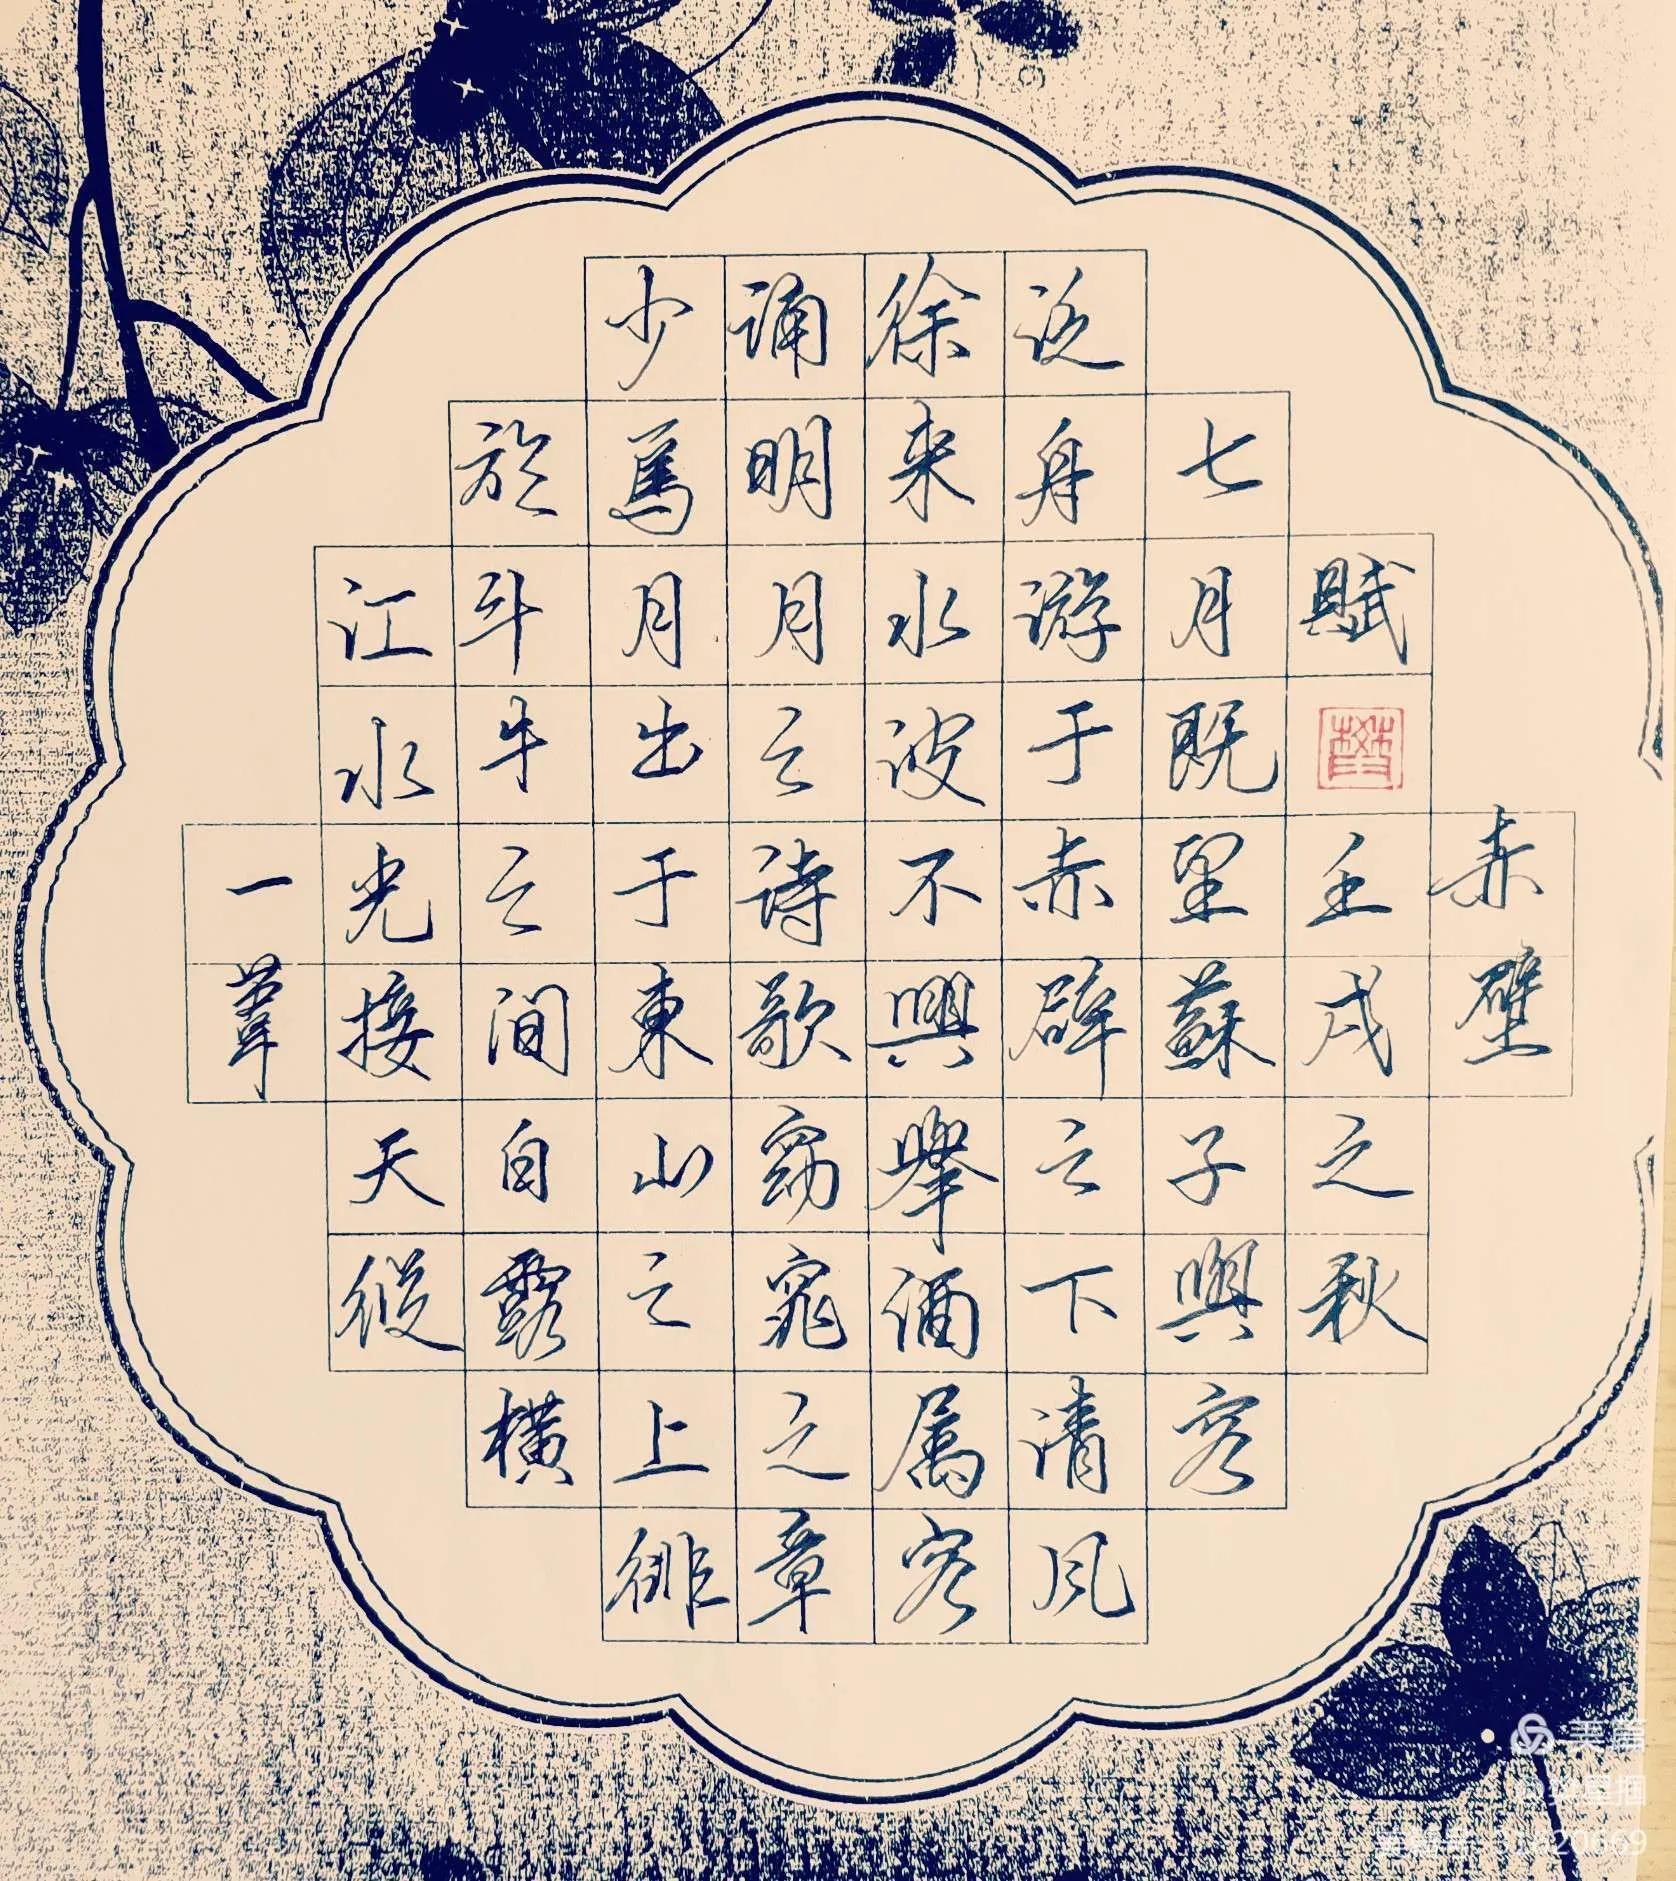 赤壁
賦壬戌之秋
七月既望蘇子與客
泛舟游于赤辟之下清风
徐来水波不興舉酒属客
诵明月之诗歌窈窕之章
少焉月出于東山之上徘
於斗牛之间白露横
江水光接天縱
一葦
美篇